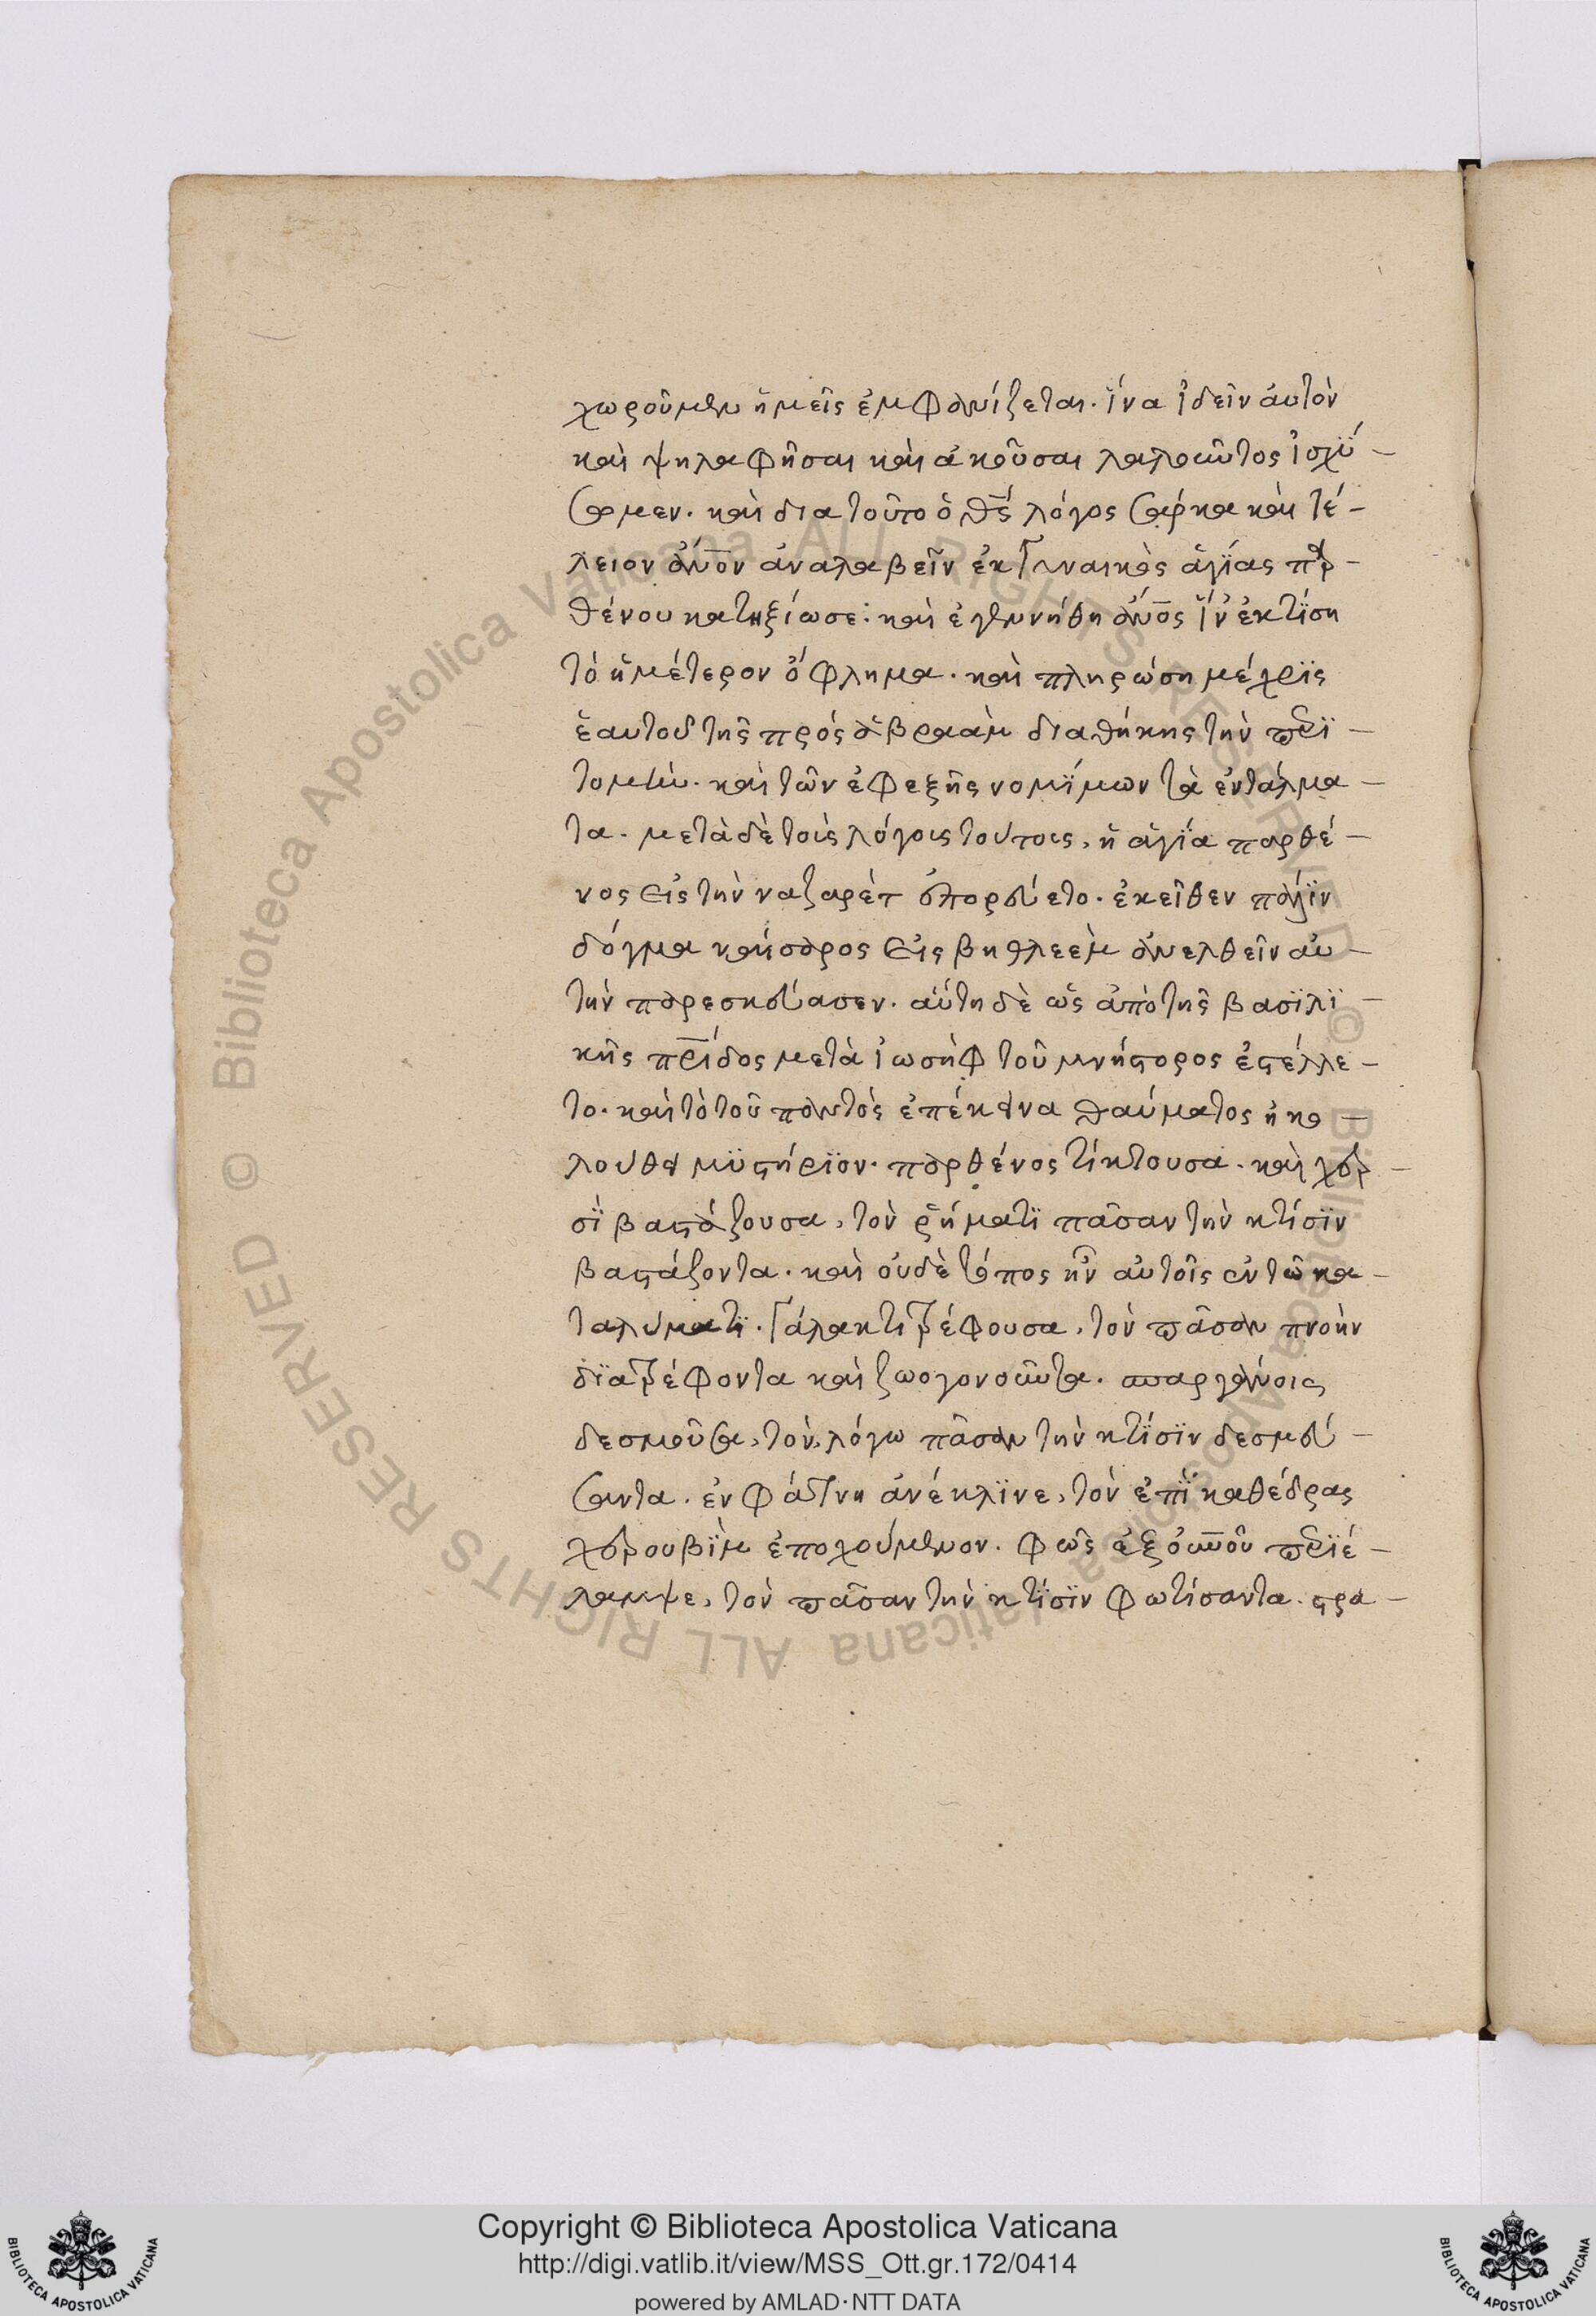 χωροῦμεν ἡμεῖς ἐμφανίζεται. ἵνα ἰδεῖν ἀυτὸν
καὶ ψηλαφῆσαι καὶ ἀκοῦσαι λαλοῦντος ἰσχύ-
σωμεν. καὶ δια τοῦτο ὁ θς λόγος σάρκα καὶ τέ-
λειον ἄνον ἀναλαβεῖν ἐκ γυναικὸς ἁγίας παρ-
θένου κατηξίωσε: καὶ ἐγεννήθη ἄνος ἵν ἐκτίση
τὸ ἡμέτερον ὄφλημα. καὶ πληρώση μέχρϊς
ἑαυτοῦ τῆς πρός ἀβραὰμ διαθήκης τὴν περϊ-
τομὴν. καὶ τῶν ἐφεξῆς νομΐμων τὰ ἐντάλμα-
τα. μετὰ δὲ τοὺς λόγους τούτους, ἡ ἁγία παρθέ-
νος εἰς τὴν ναζαρὲτ ἐπορεύετο. ἐκεῖθεν πάλϊν
δόγμα καίσαρος εἰς βηθλεὲμ ἀνελθεῖν αὐ-
τὴν παρεσκεύασεν. αὕτη δὲ ὡς ἀπὸ τῆς βασϊλϊ-
κῆς πρίδος μετὰ ἰωσὴφ τοῦ μνήστορος ἐστέλλε-
το. καὶ τὸ τοῦ παντὸς ἐπέκεινα θαύματος ἠκο-
λούθει μϋστήρϊον. παρθένος τίκτουσα. καὶ χερ-
σῒ βαστάζουσα, τὸν ῥήματϊ πᾶσαν τὴν κτίσϊν
βαστάζοντα. καὶ οὐδὲ τόπος ἦν αὐτοῖς ἐν τῶ κα-
ταλύματϊ. γάλακτι τρέφουσα, τὸν πᾶσαν πνοὴν
δϊατρέφοντα καὶ ζωογονοῦντα. σπαργάνοις
δεσμοῦσα, τὸν λόγω πᾶσαν τὴν κτίσϊν δεσμεύ-
σαντα. ἐν φάτνη ἀνέκλϊνε, τὸν ἐπῒ καθέδρας
χερουβῒμ ἐποχούμενον. φῶς ἐξ οὐνοῦ περϊέ-
λαμψε, τὸν πᾶσαν τὴν κτίσϊν φωτίσαντα. στρα-
Copyright © Biblioteca Apostolica Vaticana
http://digi.vatlib.it/view/MSS_Ott.gr.172/0414
powered by AMLAD·NTT DATA
BIBLIOTECA APOSTOLICA VATICANA
BIBLIOTECA APOSTOLICA VATICANA
© Biblioteca Apostolica Vaticana ALL RIGHTS RESERVED © Biblioteca Apostolica Vaticana ALL RIGHTS RESERVED